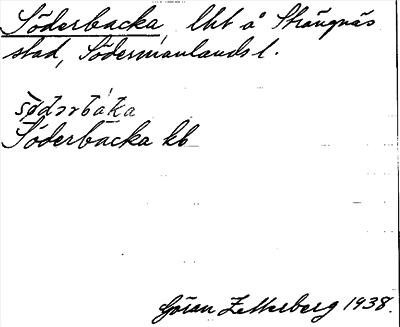 Söderbacka, lht å Strängnäs
stad, Södermanlands l.
Söderbacka kb
Göran Zetterberg 1938.